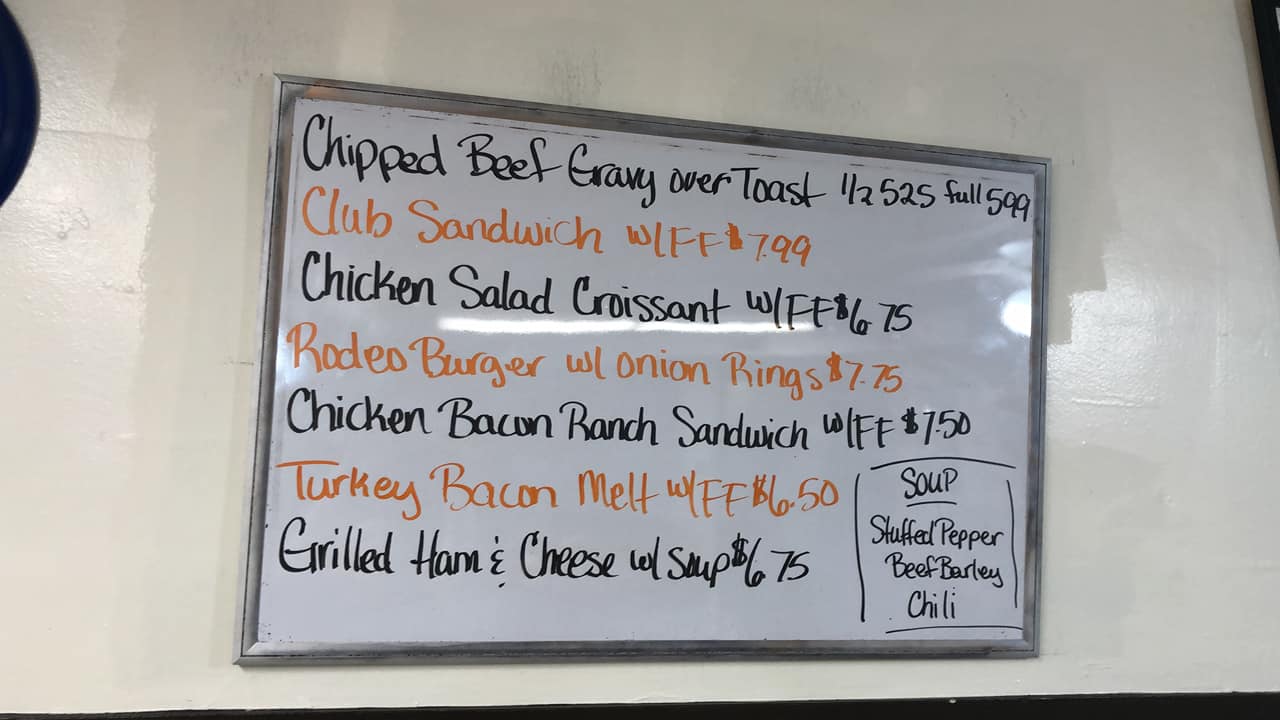 Chipped Beef Gravy over Toast 1/2 525 full 599
Club Sandwich w/FF $7.99
Chicken Salad Croissant w/FF $6.75
Rodeo Burger w/ Onion Rings $7.75
Chicken Bacon Ranch Sandwich w/FF $7.50
Turkey Bacon Melt w/FF $6.50
Grilled Ham & Cheese w/ Soup $6.75
Soup
Stuffed Pepper
Beef Barley
Chili